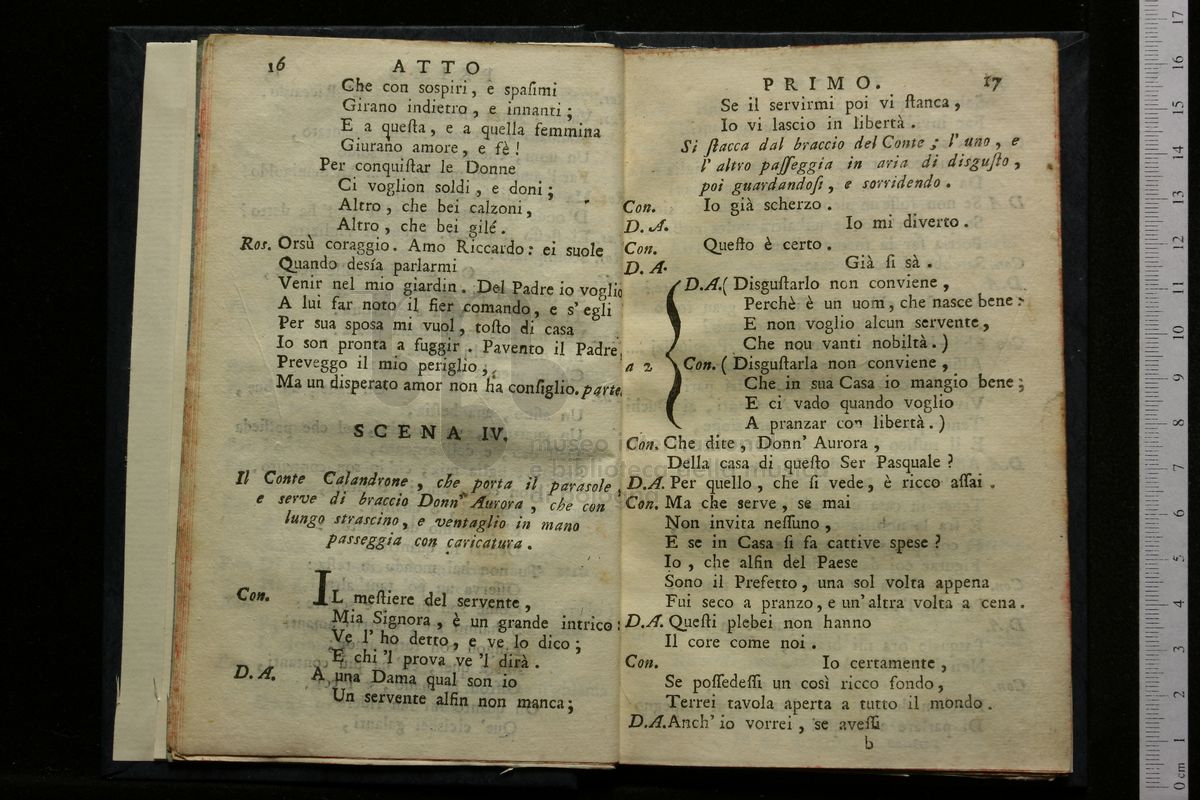 16
ATTO
Che con sospiri, e spaſimi
Girano indietro, e innanti;
E a queſta, e a quella femmina
Giurano amore, e fè!
Per conquiſtar le Donne
Ci voglion soldi, e doni;
Altro, che bei calzoni,
Altro, che bei gilé.
Ros. Orsù coraggio. Amo Riccardo: ei suole
Quando desía parlarmi
Venir nel mio giardin. Del Padre io voglio
A lui far noto il fier comando, e s'egli
Per sua sposa mi vuol, toſto di casa
Io son pronta a fuggir. Pavento il Padre,
Preveggo il mio periglio,
Ma un disperato amor non ha conſiglio. parte.
SCENA IV.
Il Conte Calandrone, che porta il parasole,
e serve di braccio Donn' Aurora, che con
lungo strascino, e ventaglio in mano
passeggia con caricatura.
Con. IL meſtiere del servente,
Mia Signora, è un grande intrico:
Ve l'ho detto, e ve lo dico;
E chi 'l prova ve 'l dirà.
D. A. A una Dama qual son io
Un servente alfin non manca;
PRIMO. 17
Se il servirmi poi vi ſtanca,
Io vi lascio in libertà.
Si ſtacca dal braccio del Conte; l'uno, e
l'altro paſſeggia in aria di disguſto,
poi guardandoſi, e sorridendo.
Con. Io già scherzo.
D. A. Io mi diverto.
Con. Queſto è certo.
D. A. Già ſi sà.
D.A. ( Disguſtarlo non conviene,
Perchè è un uom, che nasce bene:
E non voglio alcun servente,
Che nou vanti nobiltà. )
a 2 Con. ( Disguſtarla non conviene,
Che in sua Casa io mangio bene;
E ci vado quando voglio
A pranzar con libertà. )
Con. Che dite, Donn' Aurora,
Della casa di queſto Ser Pasquale?
D. A. Per quello, che ſi vede, è ricco aſſai.
Con. Ma che serve, se mai
Non invita neſſuno,
E se in Casa ſi fa cattive spese?
Io, che alfin del Paese
Sono il Prefetto, una sol volta appena
Fui seco a pranzo, e un'altra volta a cena.
D.A. Queſti plebei non hanno
Il core come noi.
Con. Io certamente,
Se poſſedeſſi un così ricco fondo,
Terrei tavola aperta a tutto il mondo.
D.A. Anch'io vorrei, se aveſſi
b